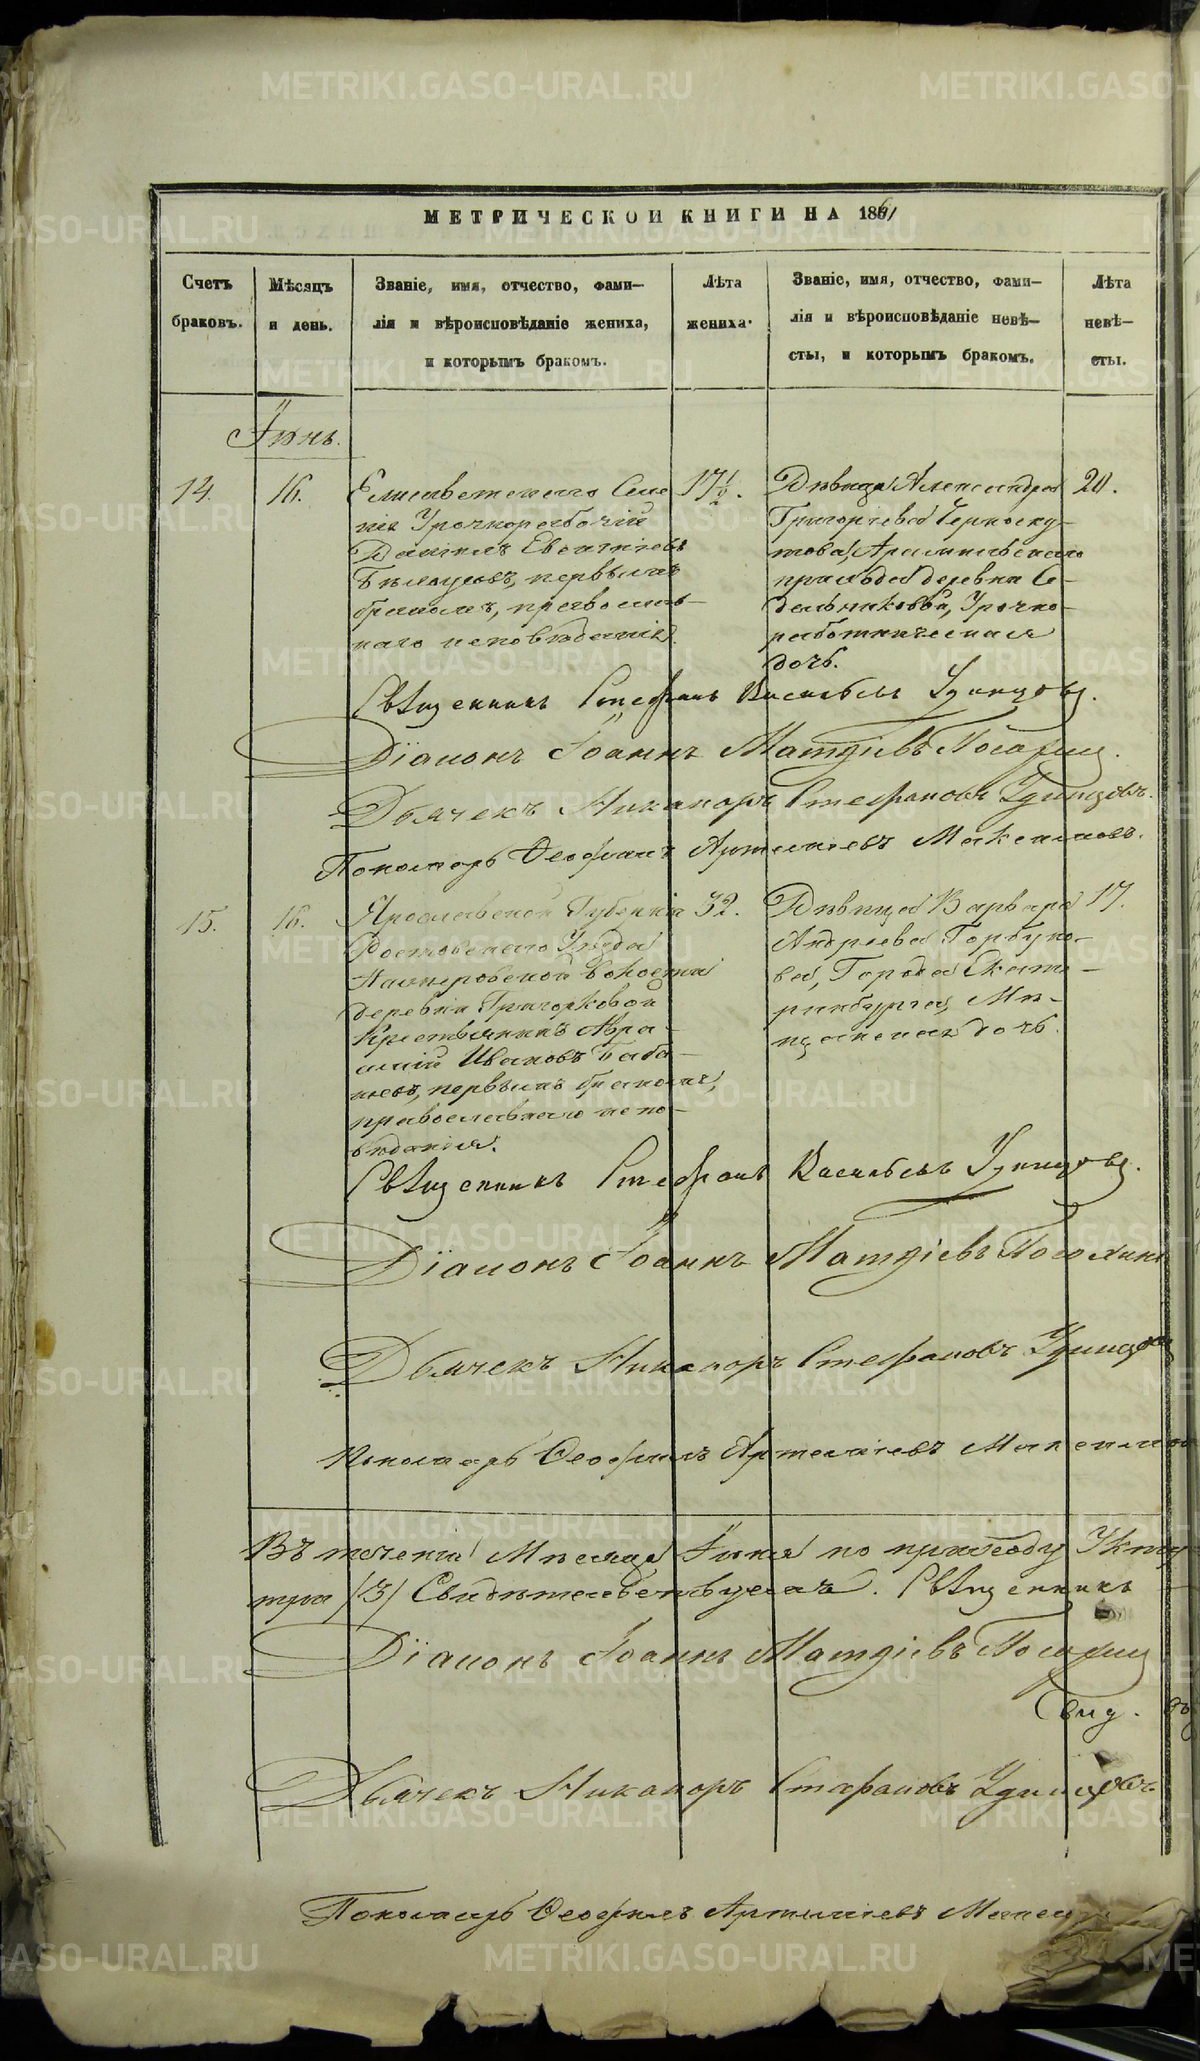 МЕТРИЧЕСКОЙ КНИГИ НА 1861
Счетъ
браковъ.
Мѣсяцъ
и день.
Званіе, имя, отчество, фами-
лія и вѣроисповѣданіе жениха,
и которымъ бракомъ.
Лѣта
жениха.
Званіе, имя, отчество, фами-
лія и вѣроисповѣданіе невѣ-
сты, и которымъ бракомъ.
Лѣта
невѣ-
сты.
Іюнь.
14.
16.
Елисаветскаго Селе
нія Урочнорабочій
Даніилъ Евгеніевъ
первымъ
бракомъ, православ-
наго исповѣданія.
17½.
Дѣвица Александра
Григорьева Черноску-
това, Арамильскаго
прихода деревни Се-
дельниковой, Урочно-
работническая
дочь.
20.
Священникъ Стефанъ Васильевъ Удинцовъ.
Діаконъ Іоаннъ Матѳіевъ
Дьячекъ Никаноръ Стефановъ Удинцовъ.
Пономарь Ѳеофилъ Артемьевъ
15.
16.
Ярославской Губерніи
Ростовскаго Уѣзда
Волости
деревни Григорковой
Крестьянинъ Авра-
амій Ивановъ Баба-
первымъ бракомъ,
православнаго испо-
вѣданія.
32.
Дѣвица Варвара
Андреева Горбуно-
ва, Города Екате-
ринбурга, Мѣ-
щанская дочь.
17.
Священникъ Стефанъ Васильевъ Удинцовъ.
Діаконъ Іоаннъ Матѳіевъ
Дьячекъ Никаноръ Стефановъ Удинцовъ
Пономарь Ѳеофилъ Артемьевъ
Въ теченіи Мѣсяца Іюня по приходу
три /3/ Свидѣтельствуемъ. Священникъ
Діаконъ Іоаннъ Матѳіевъ
Дьячекъ Никаноръ Стефановъ Удинцовъ
Пономарь Ѳеофилъ Артемьевъ
METRIKI.GASO-URAL.RU